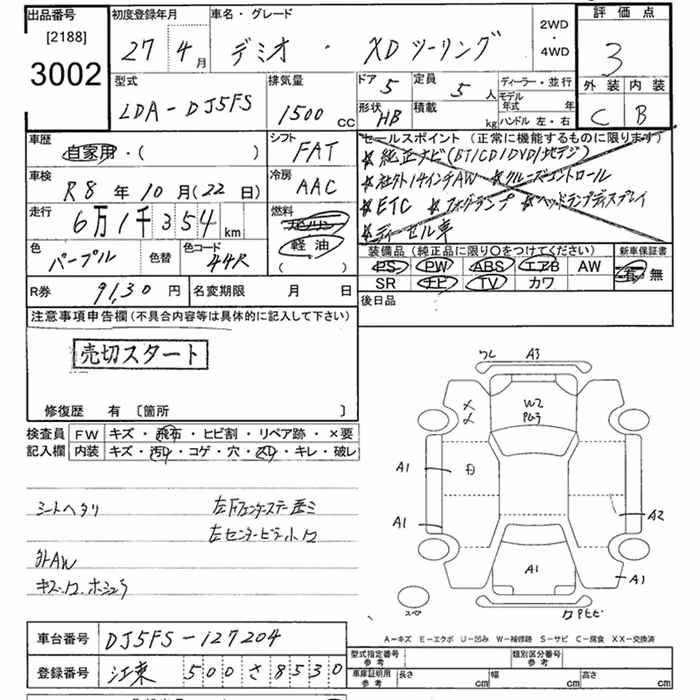 出品番号
[2188]
3002
初度登録年月
27年4月
車名・グレード
デミオ・XDツーリング
2WD・4WD
評価点
3
外装 内装
C B
型式
LDA-DJ5FS
排気量
1500 CC
ドア 5
形状 HB
定員 5人
積載 kg
ディーラー・並行
モデル年式 年
ハンドル 左・右
車歴
自家用・( )
シフト
FAT
車検
R8年10月(22日)
冷房
AAC
走行
6万1千354km
燃料
ガソリン
軽油
( )
色
パープル
色替
色コード
44R
セールスポイント(正常に機能するものに限ります)
★純正ナビ(BT/CD/DVD/地デジ)
★社外14インチAW ★クルーズコントロール
★ETC ★フォグランプ ★ヘッドランプディスプレイ
★ディーゼル車
装備品(純正品に限り○をつけてください)
新車保証書
PS PW ABS エアB AW
SR ナビ TV カワ
有 無
R券 9,130円
名変期限 月 日
後日品
注意事項申告欄(不具合内容等は具体的に記入して下さい)
売切スタート
修復歴 有 〔箇所 〕
検査員記入欄
FW キズ・飛石・ヒビ割・リペア跡・×要
内装 キズ・汚レ・コゲ・穴・スレ・キレ・破レ
シートヘタリ
左Fフェンダーステー歪ミ
左センターピラー小ワ
外AW
キズ・ワ・ホシュウ
ワレ A3
W2
A1
A1
A2
A1
A1
スペア
A-キズ E-エクボ U-凹み W-補修跡 S-サビ C-腐食 XX-交換済
車台番号 DJ5FS-127204
登録番号 江東 500 さ 8530
型式指定番号 参考
類別区分番号 参考
車庫証明用 参考
長さ cm 幅 cm 高さ cm